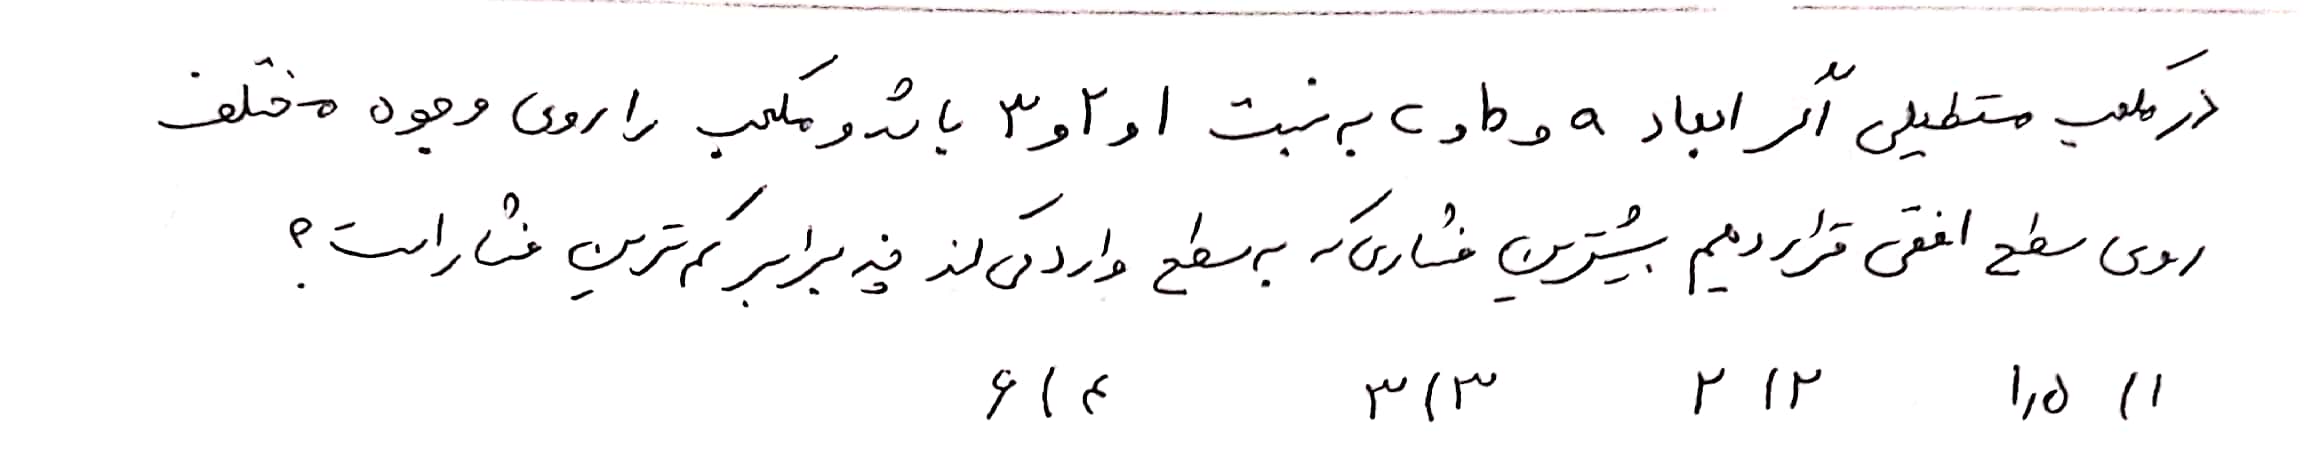 در مکعب مستطیلی اگر ابعاد a و b و c به نسبت ۱ و ۲ و ۳ باشد و مکعب را روی وجوه مختلف
روی سطح افقی قرار دهیم بیشترین فشاری که به سطح وارد می کند چند برابر کم ترین فشار است؟
۱) ۱٫۵ ۲) ۲ ۳) ۳ ۴) ۶